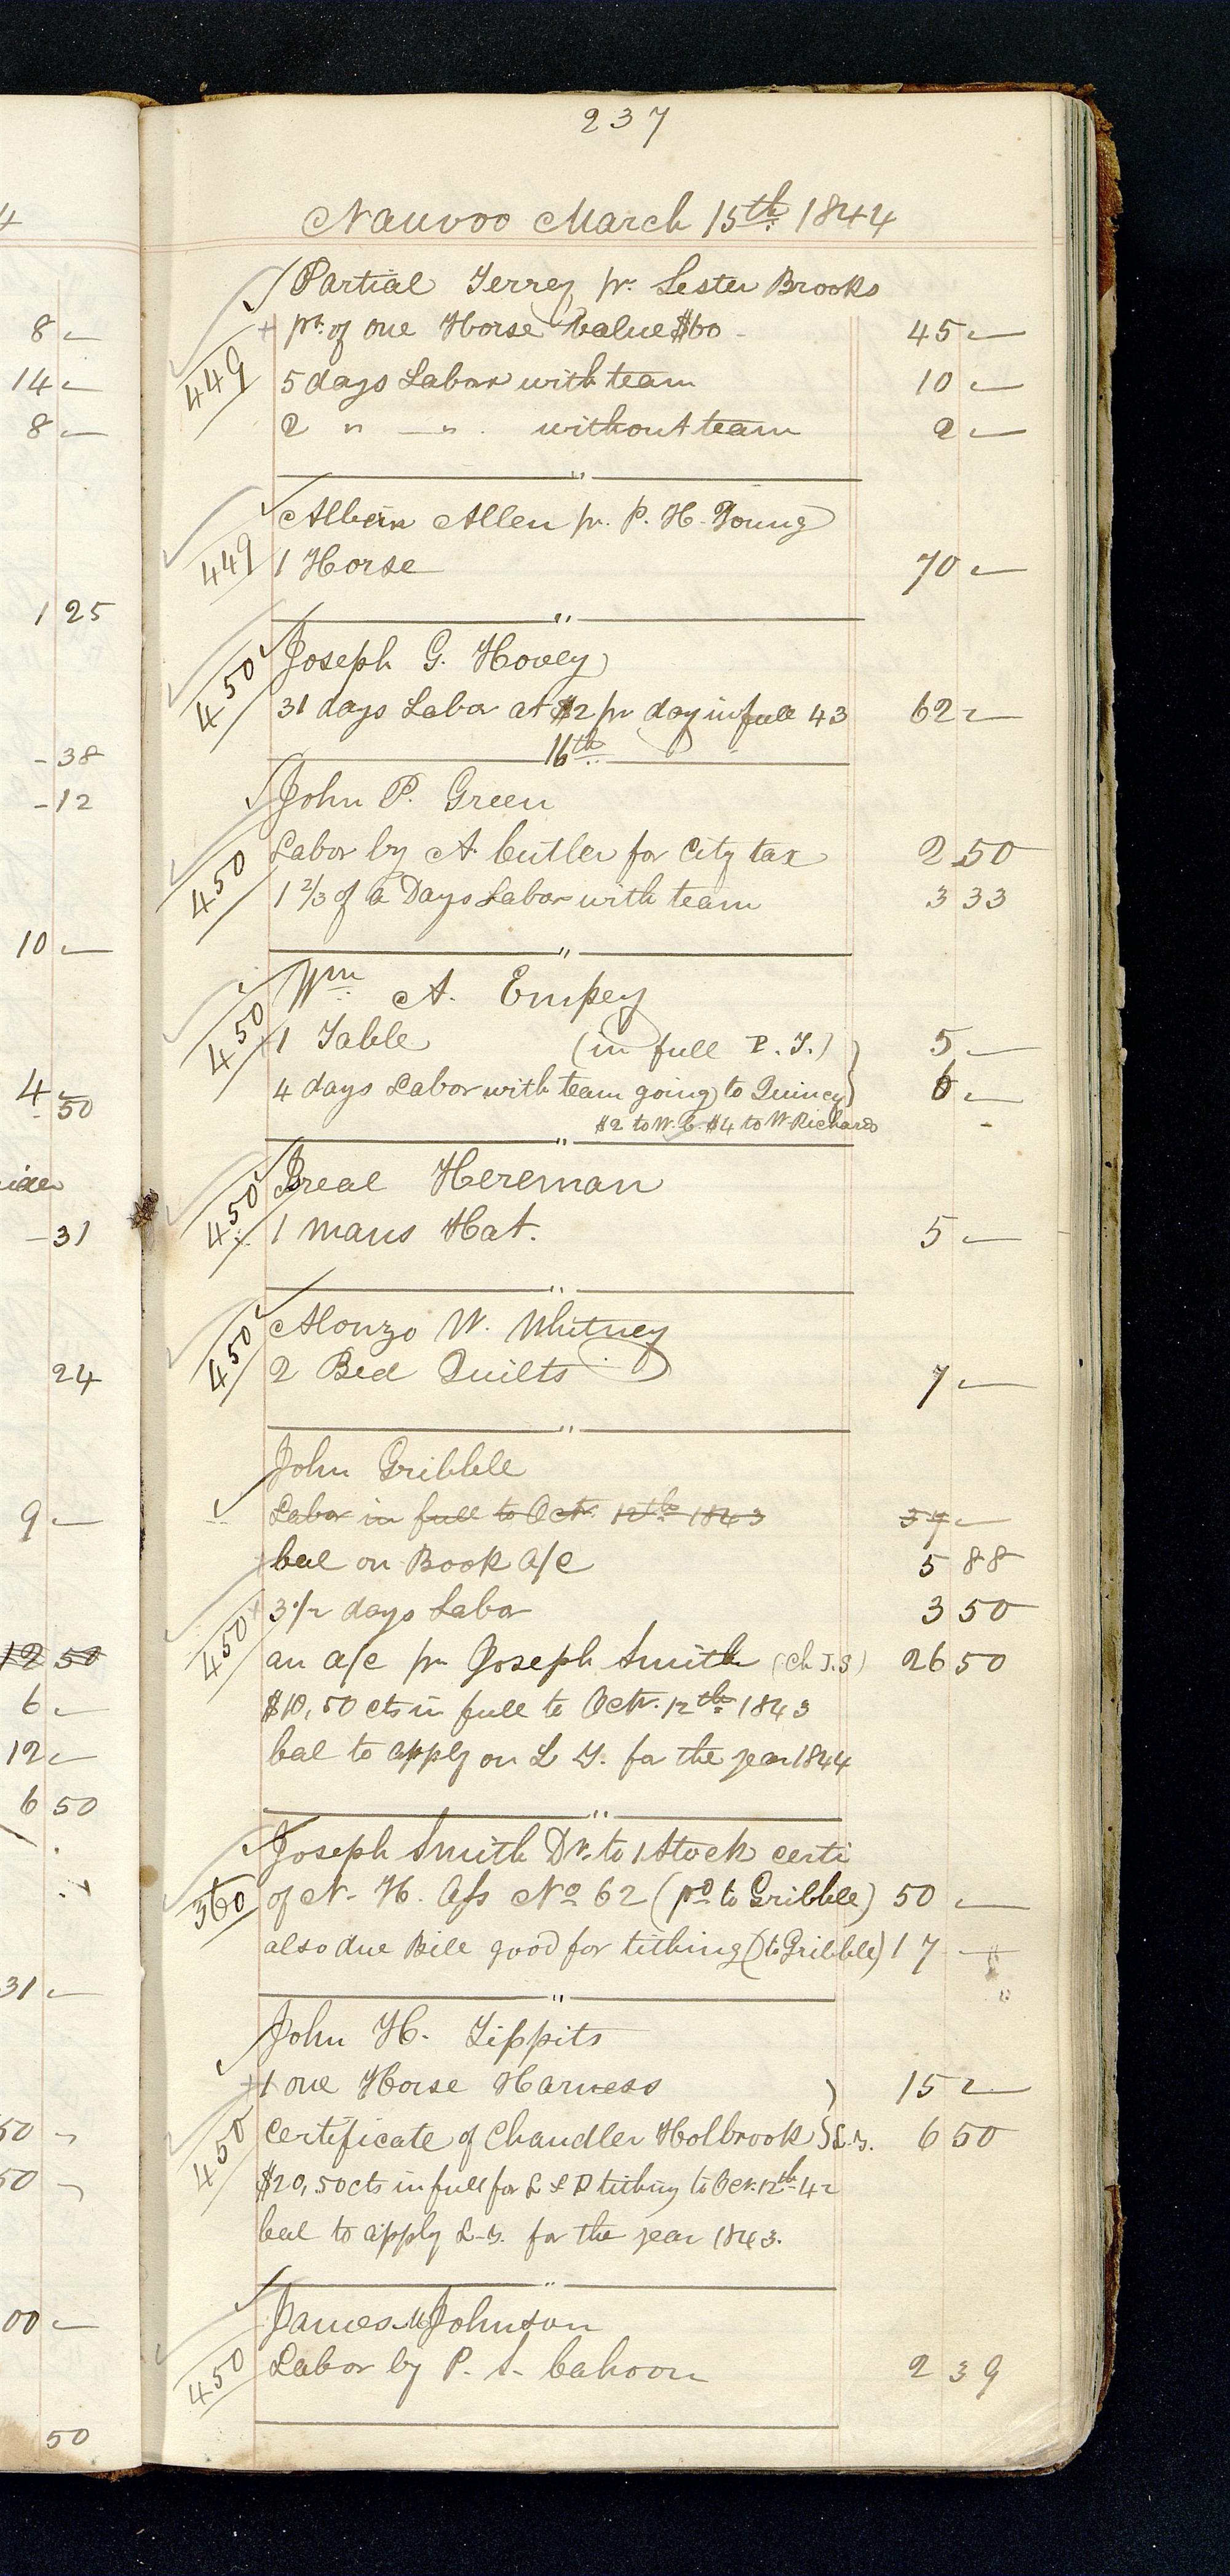 237
Nauvoo March 15th 1844
Partial Terrey pr. Lester Brooks
449
pt. of one Horse value $60 - 45 —
5 days Labor with team 10 —
2 " — " without team 2 —
"
Albern Allen pr. P. H. Young
449
1 Horse 70 —
"
Joseph G. Hovey
450
31 days Labor at $2 pr day in full 43 62 —
16th
John P. Green
450
Labor by A. Cutler for City tax 2 50
1 2/3 of a Days Labor with team 3 33
"
Wm A. Empey
450
1 Table (in full P. T.) 5 —
4 days Labor with team going to Quincy 6 —
$2 to W. C. $4 to W Richards
"
Hereman
450
1 mans Hat. 5 —
"
Alonzo W. Whitney
450
2 Bed Quilts 7 —
"
John Gribble
Labor in full to Octr. 12th 1843 37 —
bal on Book a/c 5 88
3 1/2 days Labor 3 50
450
an a/c pr Joseph Smith (ch J.S) 26 50
$10,50 cts in full to Octr. 12th 1843
bal to apply on L T. for the year 1844
"
Joseph Smith Dr. to 1 Stock certi
360
of N. H. Ass No 62 (pd to Gribble) 50 —
also due Bill good for tithing (to Gribble) 17 —
"
John H. Tippits
1 one Horse Harness 15 —
450
Certificate of Chandler Holbrook L. T. 6 50
$20,50cts in full for L & P tithing to Oct. 12th 42
bal to apply L-T. for the year 1843.
"
James Johnson
450
Labor by P. S. Cahoon 2 39
4
8 —
14 —
8 —
1 25
- 38
- 12
10 —
4 50
- 31
24
9 —
12 50
6 —
12 —
6 50
31 —
50 —
50 —
00 —
50